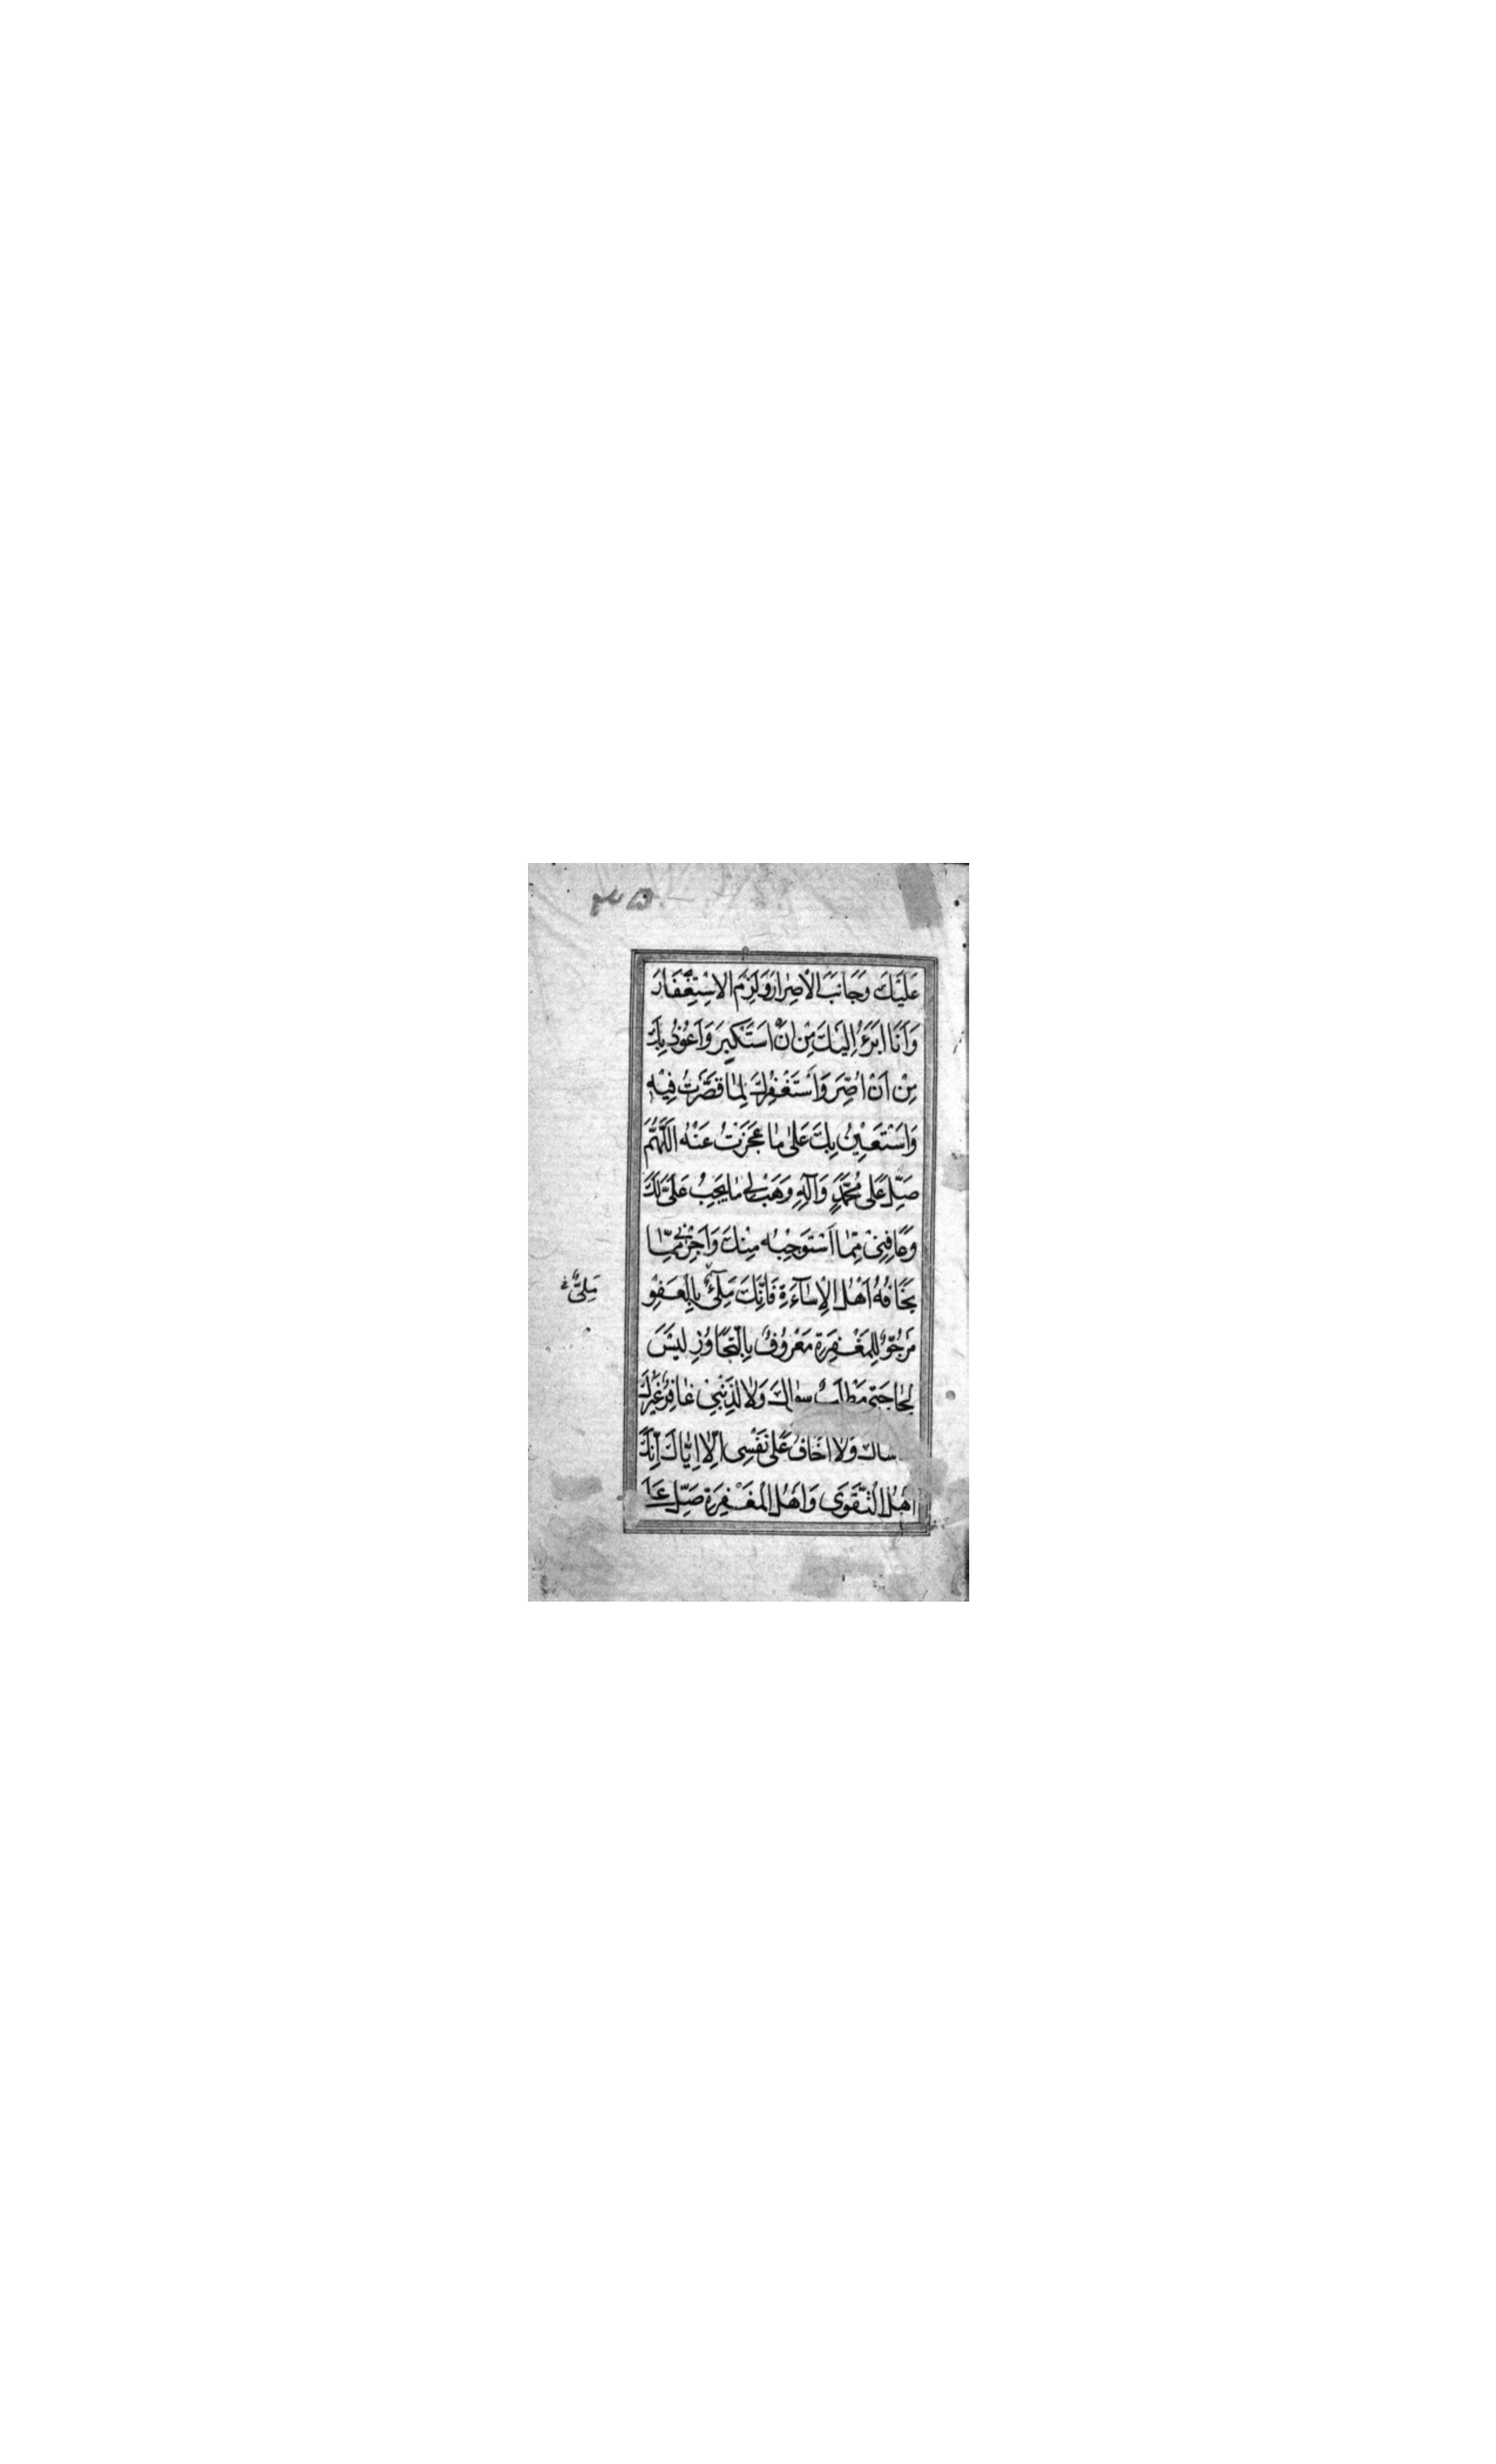 عَلَيْكَ وَجَانَبَ الْاِصْرَارَ وَلَزِمَ الْاِسْتِغْفَارَ
وَاَنَا اَبْرَءُ اِلَيْكَ مِنْ اَنْ اَسْتَكْبِرَ وَاَعُوْذُ بِكَ
مِنْ اَنْ اُصِرَّ وَاَسْتَغْفِرُكَ لِمَا قَصَّرْتُ فِيْهِ
وَاَسْتَعِيْنُ بِكَ عَلٰى مَا عَجَزْتُ عَنْهُ اَللّٰهُمَّ
صَلِّ عَلٰى مُحَمَّدٍ وَآلِهٖ وَهَبْ لِيْ مَا يَجِبُ عَلَيَّ لَكَ
وَعَافِنِيْ مِمَّا اَسْتَوْجِبُهُ مِنْكَ وَاَجِرْنِيْ مِمَّا
يَخَافُهُ اَهْلُ الْاِسَآءَةِ فَاِنَّكَ مَلِيْٓءٌ بِالْعَفْوِ
مَلِيٌّ
مَرْجُوٌّ لِلْمَغْفِرَةِ مَعْرُوْفٌ بِالتَّجَاوُزِ لَيْسَ
لِحَاجَتِيْ مَطْلَبٌ سِوَاكَ وَلَا لِذَنْبِيْ غَافِرٌ غَيْرُكَ
وَلَا اَخَافُ عَلٰى نَفْسِيْ اِلَّا اِيَّاكَ اِنَّكَ
اَهْلُ التَّقْوٰى وَاَهْلُ الْمَغْفِرَةِ صَلِّ عَلٰى